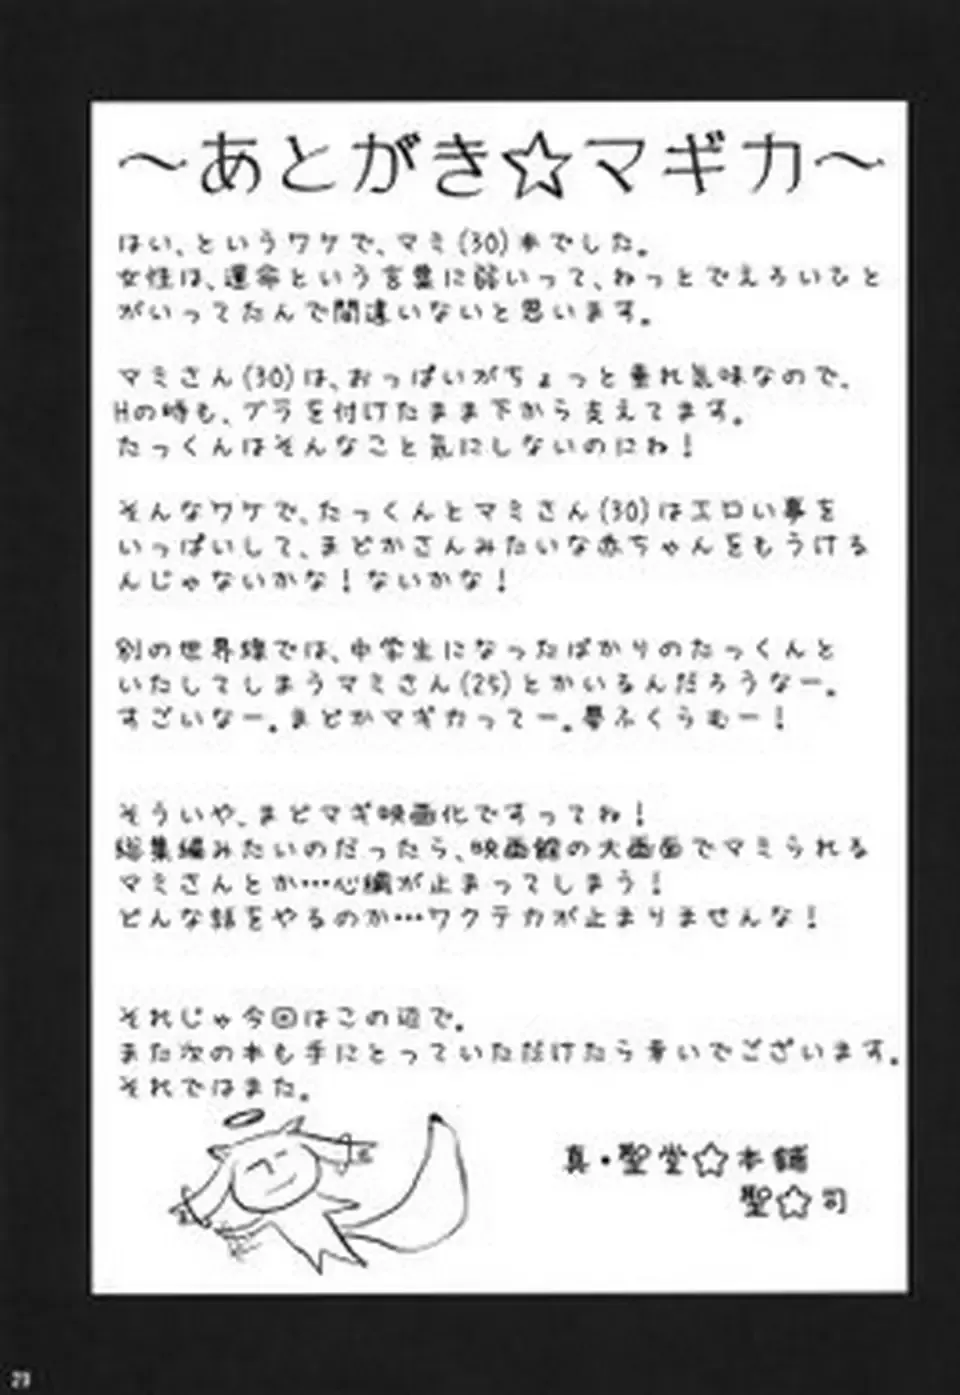 ～あとがき☆マギカ～
はい、というワケで、マミ(30)本でした。
女性は、運命という言葉に弱いって、ねっとでえろいひと
がいってたんで間違いないと思います。
マミさん(30)は、おっぱいがちょっと垂れ気味なので、
Hの時も、ブラを付けたまま下から支えてます。
たっくんはそんなこと気にしないのにね！
そんなワケで、たっくんとマミさん(30)はエロい事を
いっぱいして、まどかさんみたいな赤ちゃんをもうける
んじゃないかな！ないかな！
そういや、まどマギ映画化ですってね！
総集編みたいのだったら、映画館の大画面でマミられる
マミさんとか…心臓が止まってしまう！
どんな話をやるのか…ワクテカが止まりませんな！
それじゃ今回はこの辺で。
また次の本も手にとっていただけたら幸いでございます。
それではまた。
真・聖堂☆本舗
聖☆司
23